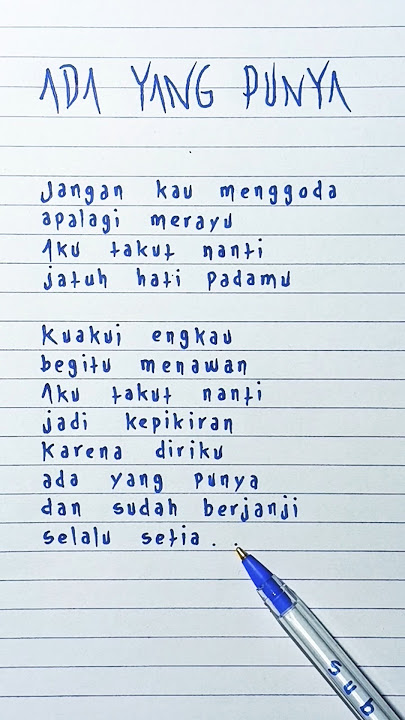 ADA YANG PUNYA
Jangan kau menggoda
apalagi merayu
Aku takut nanti
jatuh hati padamu
Kuakui engkau
begitu menawan
Aku takut nanti
jadi kepikiran
Karena diriku
ada yang punya
dan sudah berjanji
selalu setia . .
sub